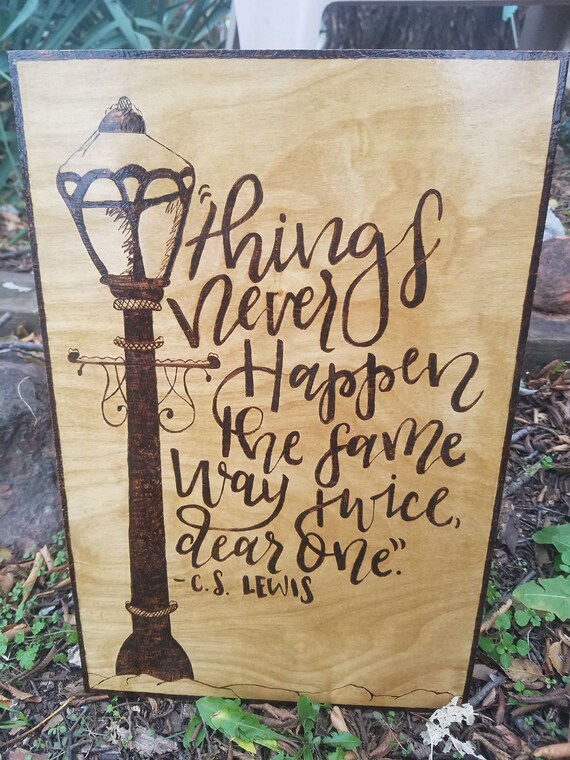 "things
never
Happen
the same
way twice,
dear one."
-C.S. LEWIS